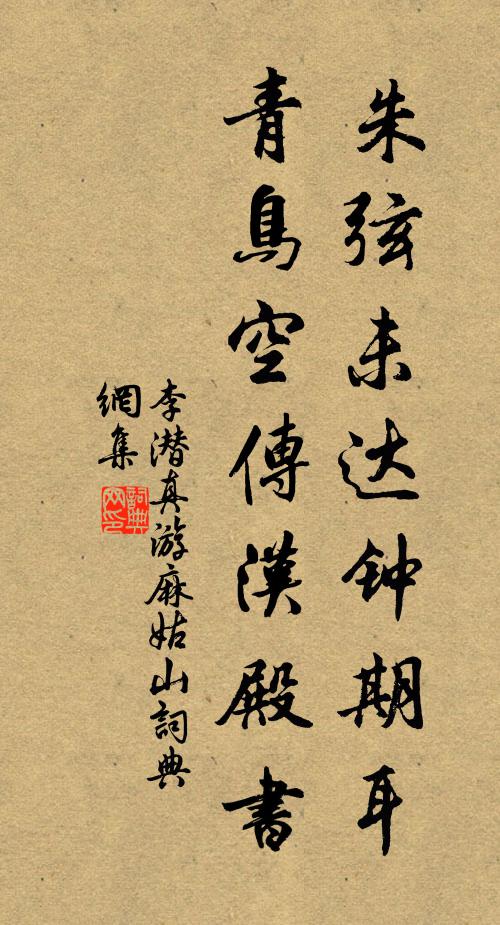 朱弦未达钟期耳
青鳥空傳漢殿書
李潜真游麻姑山詞典
網集
詞典
网印